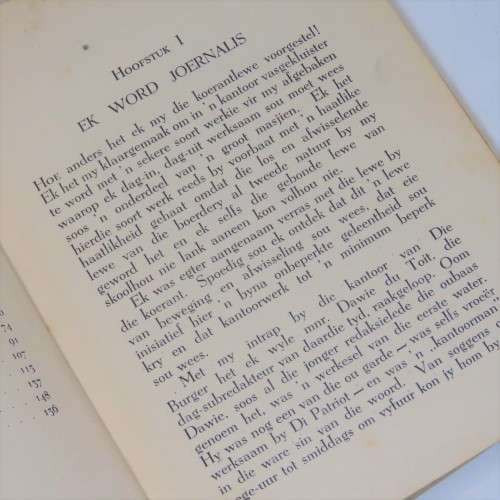 Hoofstuk I
EK WORD JOERNALIS
Hoe anders het ek my die koerantlewe voorgestel!
Ek het my klaargemaak om in 'n kantoor vasgekluister
te word met 'n sekere soort werkie vir my afgebaken
waarop ek dag-in, dag-uit werksaam sou moet wees
soos 'n onderdeel van 'n groot masjien. Ek het
hierdie soort werk reeds by voorbaat met 'n haatlike
haatlikheid gehaat omdat die los en afwisselende
lewe van die boerdery al tweede natuur by my
geword het en ek selfs die gebonde lewe van
skoolhou nie lank aaneen kon volhou nie.
Ek was egter aangenaam verras met die lewe by
die koerant. Spoedig sou ek ontdek dat dit 'n lewe
van beweging en afwisseling sou wees, dat eie
inisiatief hier 'n byna onbeperkte geleentheid sou
kry en dat kantoorwerk tot 'n minimum beperk
sou wees.
Met my intrap by die kantoor van Die
Burger het ek wyle mnr. Dawie du Toit, die
dag-subredakteur van daardie tyd, raakgeloop. Oom
Dawie, soos al die jonger redaksielede die oubaas
genoem het, was 'n werkesel van die eerste water.
Hy was nog een van die ou garde — was selfs vroeër
werksaam by Di Patriot — en was 'n „kantoorman”
in die ware sin van die woord. Van soggens
ege-uur tot smiddags om vyfuur kon jy hom by
74
91
107
115
137
148
156